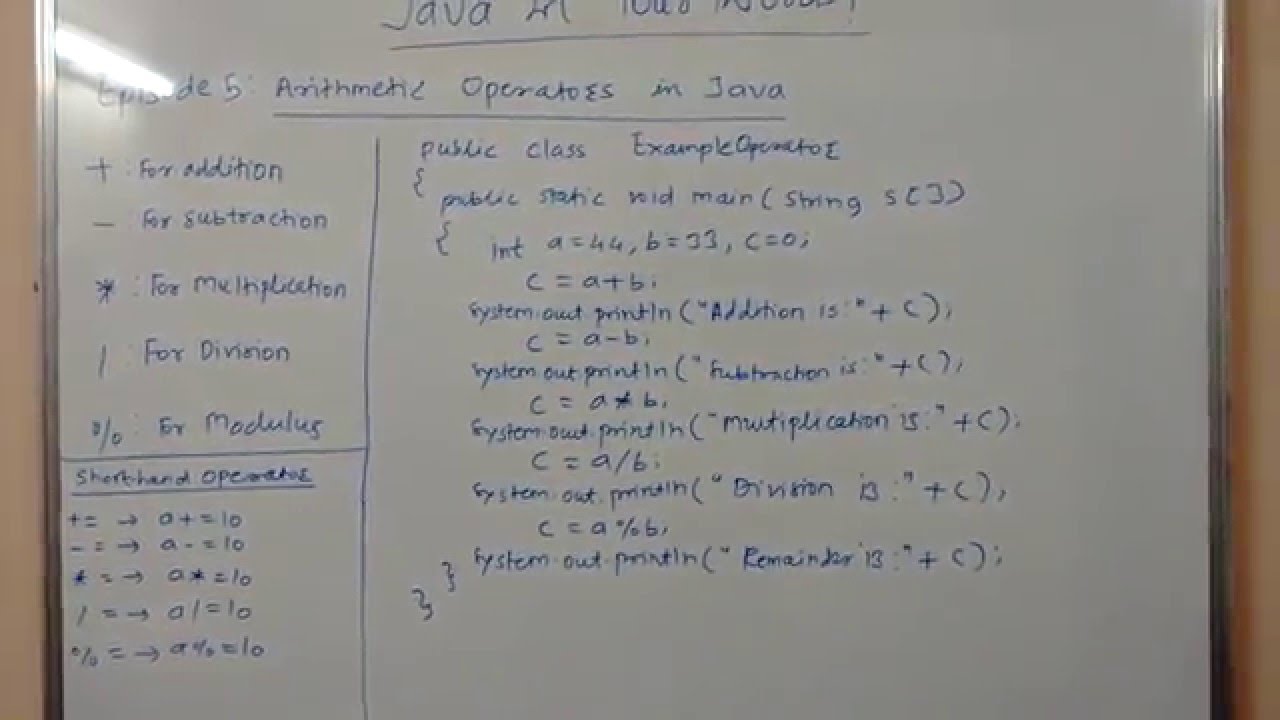 Java in
Episode 5: Arithmetic Operators in Java
+ : For addition
- For Subtraction
* : For Multiplication
/ : For Division
% : For Modulus
Shorthand Operator
+= → a+=10
-= → a-=10
*= → a*=10
/= → a/=10
%= → a%=10
public class ExampleOperator
{
public static void main(String s[])
{ int a=44, b=33, c=0;
c = a+b;
System.out.println("Addition is:" + c);
c = a-b;
System.out.println("Subtraction is:" +c);
c = a*b;
System.out.println("Multiplication is:" +c);
c = a/b;
System.out.println(" Division is:" +c);
c = a%b;
System.out.println(" Remainder is:" + c);
}
}